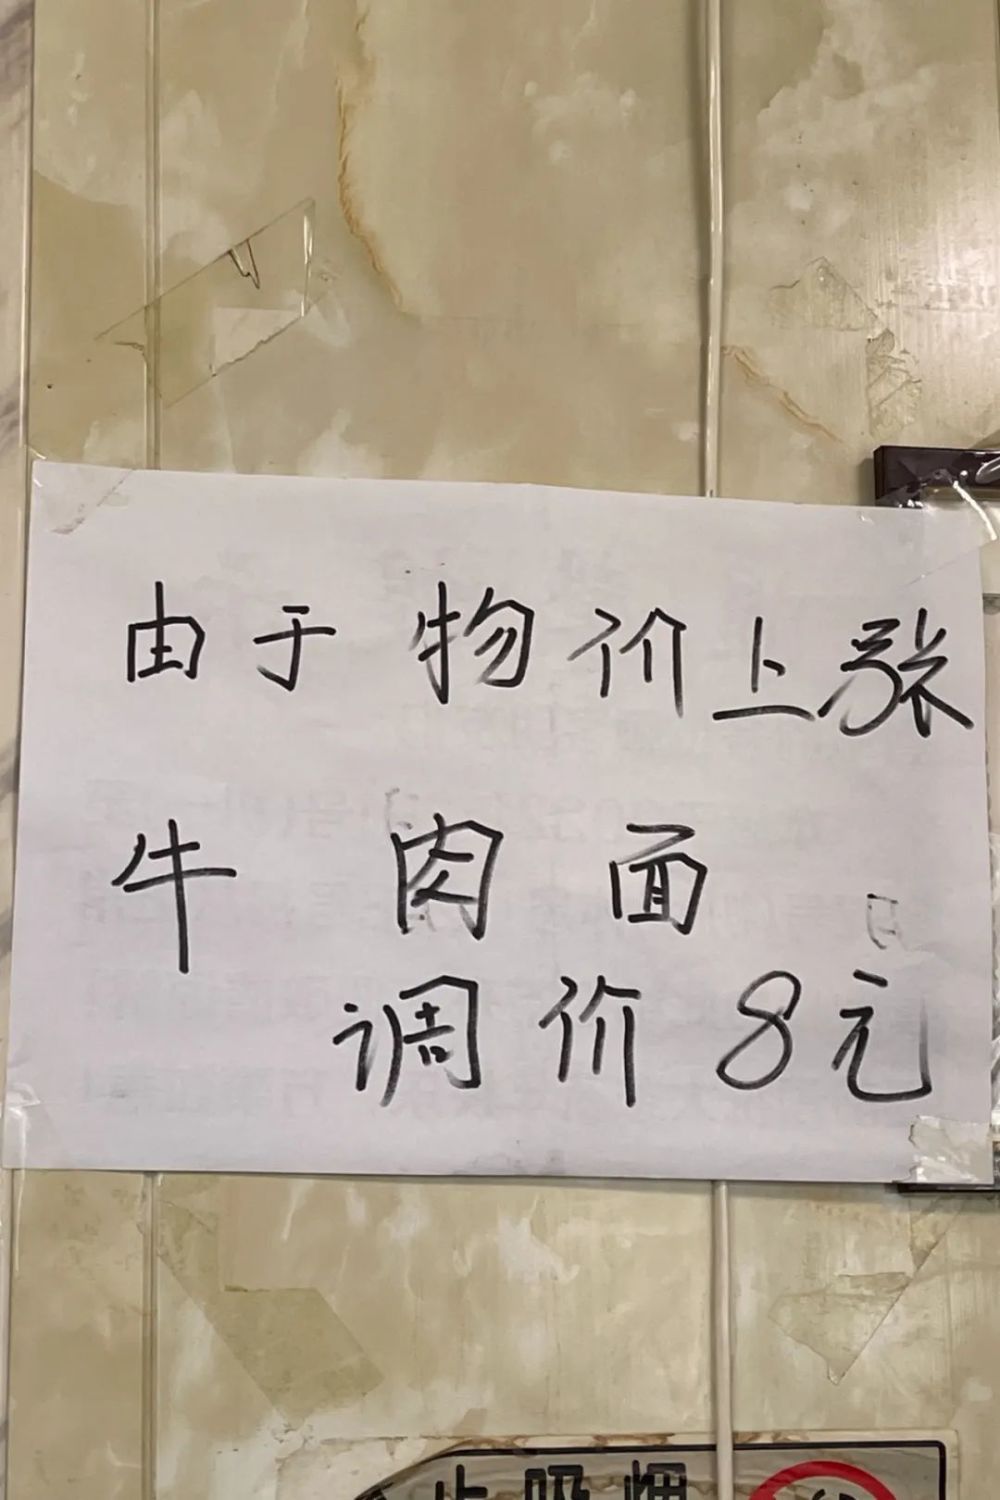 由于物价上涨
牛肉面
调价8元
止吸烟